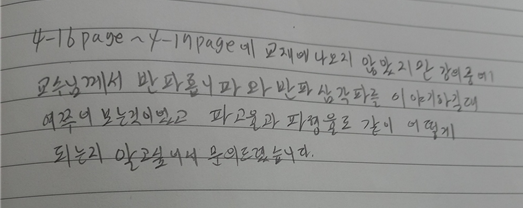 4-16page ~ 4-17page에 교재에 나오지 않았지만 강의중에
교수님께서 반파롭니파와 반파삼각파를 이야기하실때
여쭈어 보는것이었고 파고율과 파형율로 같이 어떻게
되는지 알고싶어서 문의드렸습니다.